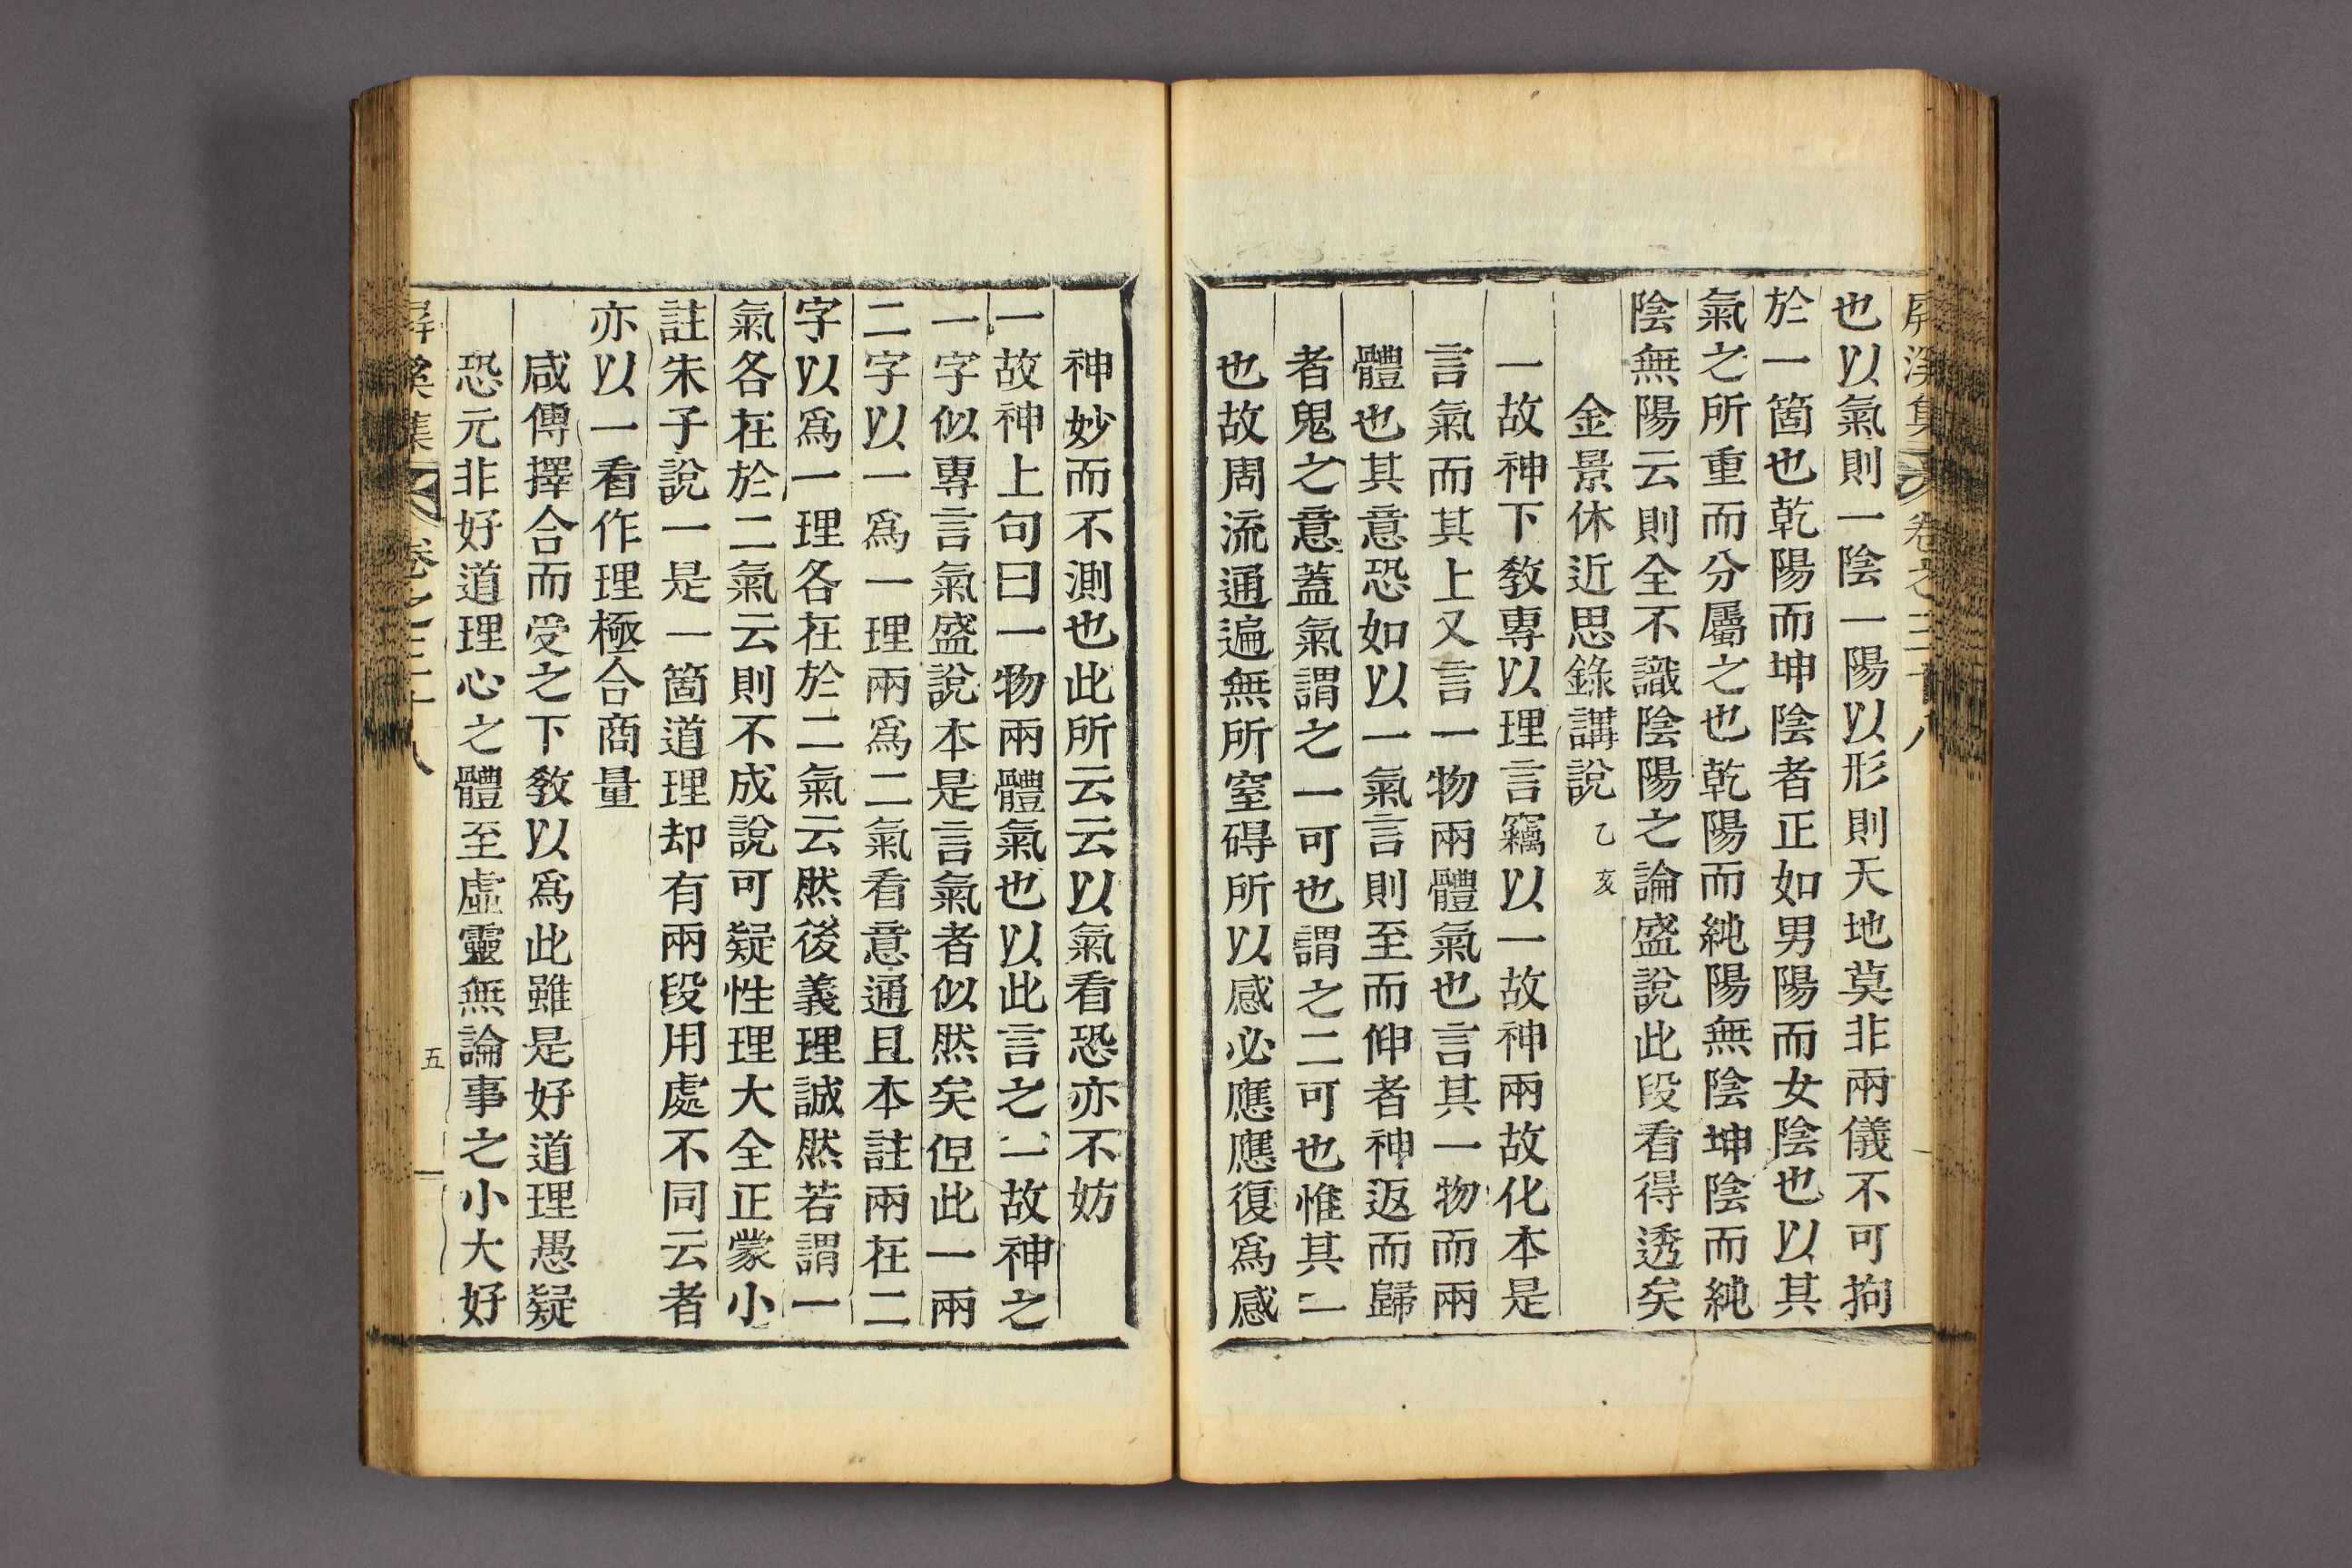 屏溪集 卷之三十八
也以氣則一陰一陽以形則天地莫非兩儀不可拘
於一箇也乾陽而坤陰者正如男陽而女陰也以其
氣之所重而分屬之也乾陽而純陽無陰坤陰而純
陰無陽云則全不識陰陽之論盛說此段看得透矣
金景休近思錄講說 乙亥
一故神下教專以理言竊以一故神兩故化本是
言氣而其上又言一物兩體氣也言其一物而兩
體也其意恐如以一氣言則至而伸者神返而歸
者鬼之意蓋氣謂之一可也謂之二可也惟其一
也故周流通遍無所窒碍所以感必應應復爲感
神妙而不測也此所云云以氣看恐亦不妨
一故神上句曰一物兩體氣也以此言之一故神之
一字似專言氣盛說本是言氣者似然矣但此一兩
二字以一爲一理兩爲二氣看意通且本註兩在二
字以爲一理各在於二氣云然後義理誠然若謂一
氣各在於二氣云則不成說可疑性理大全正蒙小
註朱子說一是一箇道理却有兩段用處不同云者
亦以一看作理極合商量
咸傳擇合而受之下教以爲此雖是好道理愚疑
恐元非好道理心之體至虛靈無論事之小大好
屏溪集 卷之三十八 五